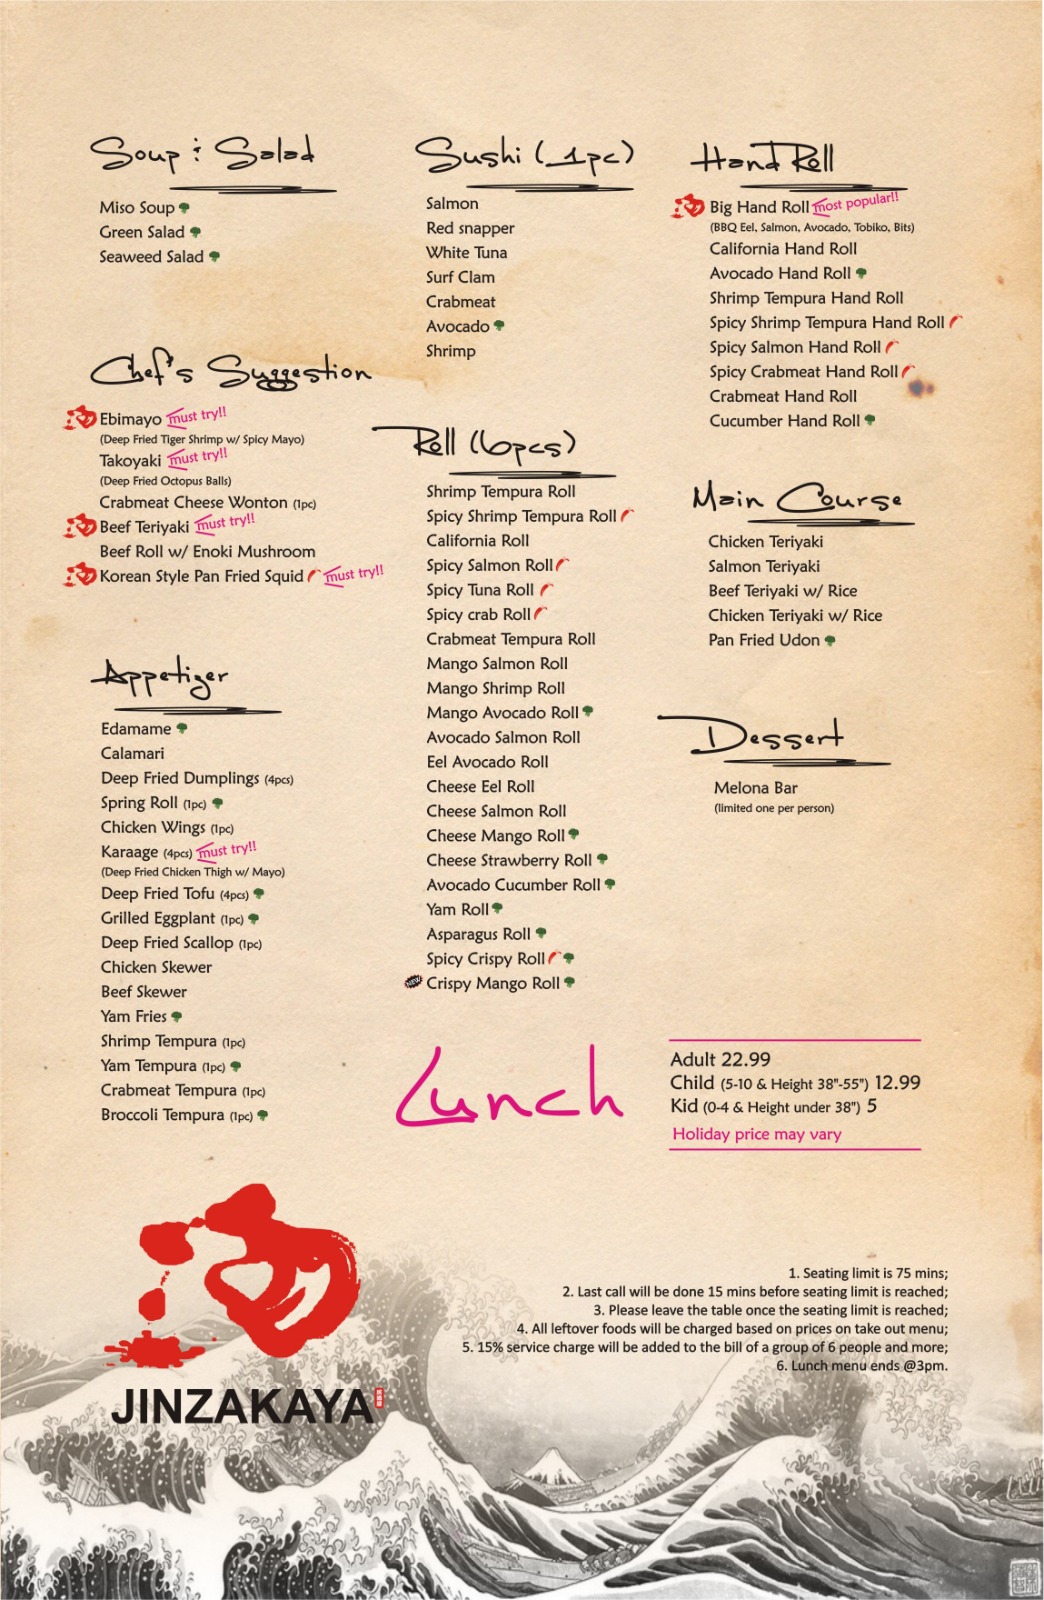 Soup & Salad
Miso Soup
Green Salad
Seaweed Salad
Chef's Suggestion
Ebimayo must try!!
(Deep Fried Tiger Shrimp w/ Spicy Mayo)
Takoyaki must try!!
(Deep Fried Octopus Balls)
Crabmeat Cheese Wonton (1pc)
Beef Teriyaki must try!!
Beef Roll w/ Enoki Mushroom
Korean Style Pan Fried Squid must try!!
Appetizer
Edamame
Calamari
Deep Fried Dumplings (4pcs)
Spring Roll (1pc)
Chicken Wings (1pc)
Karaage (4pcs) must try!!
(Deep Fried Chicken Thigh w/ Mayo)
Deep Fried Tofu (4pcs)
Grilled Eggplant (1pc)
Deep Fried Scallop (1pc)
Chicken Skewer
Beef Skewer
Yam Fries
Shrimp Tempura (1pc)
Yam Tempura (1pc)
Crabmeat Tempura (1pc)
Broccoli Tempura (1pc)
Sushi (1pc)
Salmon
Red snapper
White Tuna
Surf Clam
Crabmeat
Avocado
Shrimp
Roll (6pcs)
Shrimp Tempura Roll
Spicy Shrimp Tempura Roll
California Roll
Spicy Salmon Roll
Spicy Tuna Roll
Spicy crab Roll
Crabmeat Tempura Roll
Mango Salmon Roll
Mango Shrimp Roll
Mango Avocado Roll
Avocado Salmon Roll
Eel Avocado Roll
Cheese Eel Roll
Cheese Salmon Roll
Cheese Mango Roll
Cheese Strawberry Roll
Avocado Cucumber Roll
Yam Roll
Asparagus Roll
Spicy Crispy Roll
NEW Crispy Mango Roll
Hand Roll
Big Hand Roll most popular!!
(BBQ Eel, Salmon, Avocado, Tobiko, Bits)
California Hand Roll
Avocado Hand Roll
Shrimp Tempura Hand Roll
Spicy Shrimp Tempura Hand Roll
Spicy Salmon Hand Roll
Spicy Crabmeat Hand Roll
Crabmeat Hand Roll
Cucumber Hand Roll
Main Course
Chicken Teriyaki
Salmon Teriyaki
Beef Teriyaki w/ Rice
Chicken Teriyaki w/ Rice
Pan Fried Udon
Dessert
Melona Bar
(limited one per person)
Lunch
Adult 22.99
Child (5-10 & Height 38"-55") 12.99
Kid (0-4 & Height under 38") 5
Holiday price may vary
JINZAKAYA
1. Seating limit is 75 mins;
2. Last call will be done 15 mins before seating limit is reached;
3. Please leave the table once the seating limit is reached;
4. All leftover foods will be charged based on prices on take out menu;
5. 15% service charge will be added to the bill of a group of 6 people and more;
6. Lunch menu ends @3pm.